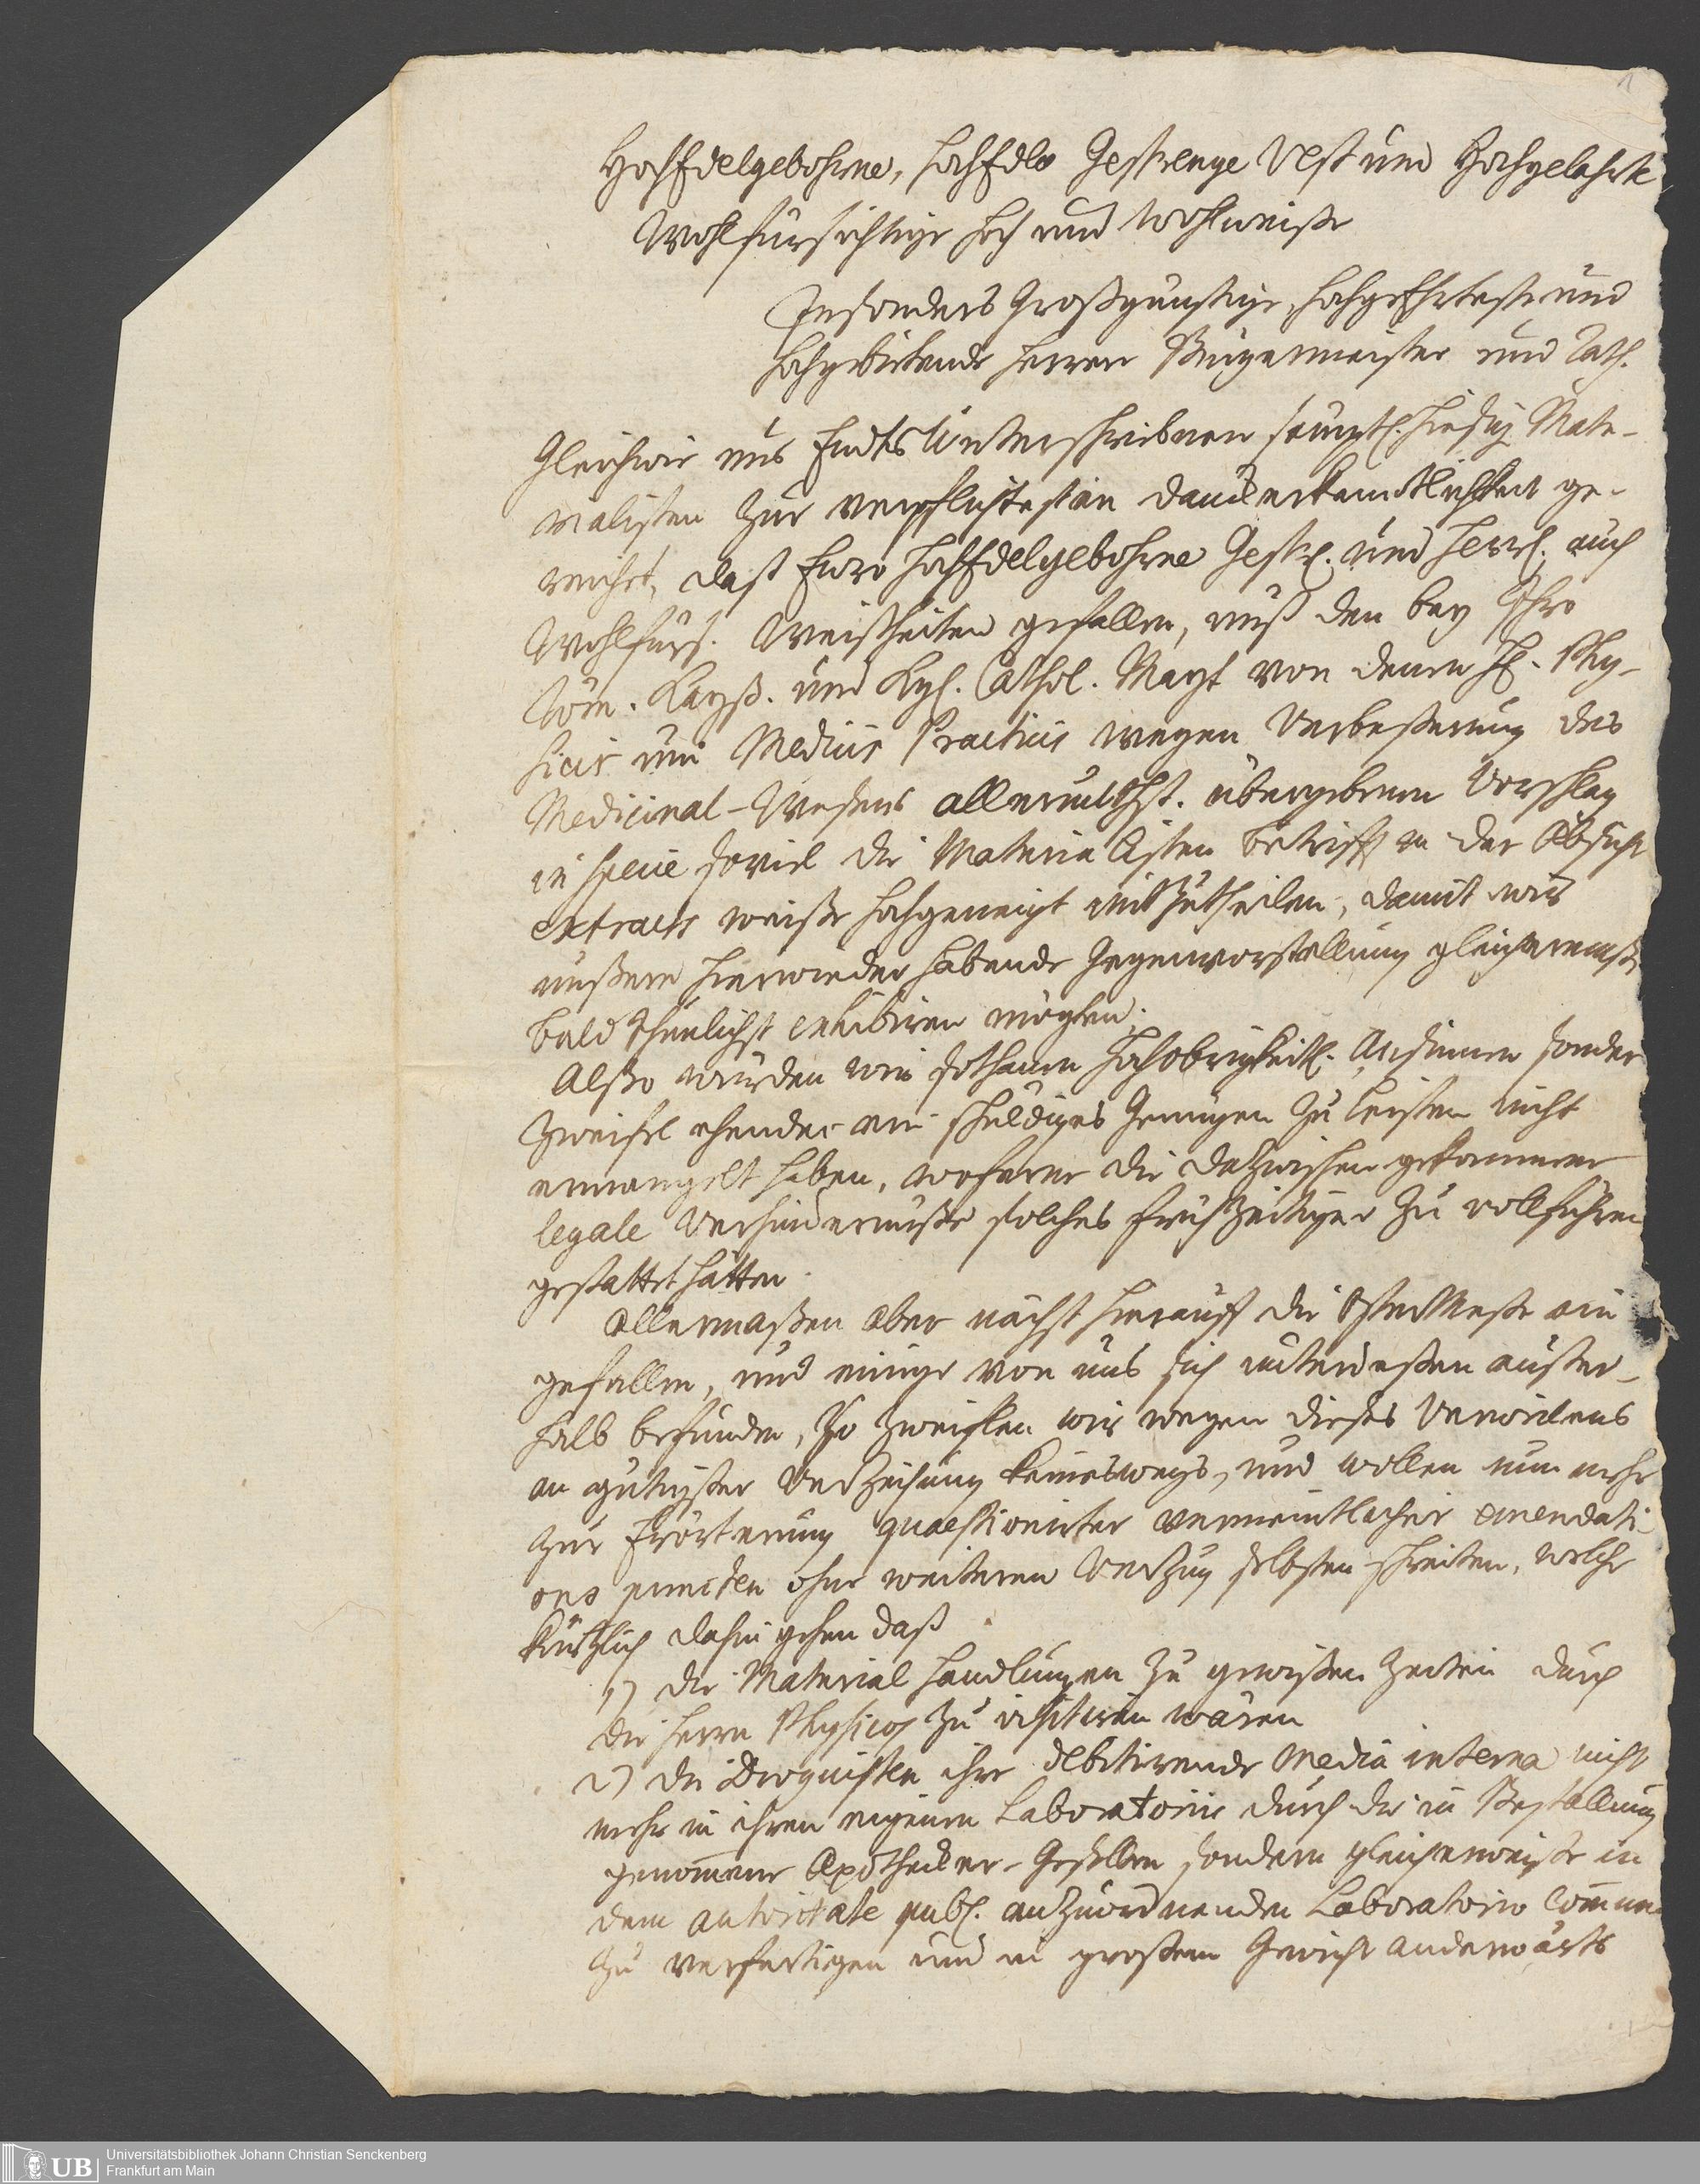 1
HochEdelgebohrne, HochEdle Gestrenge Vest und Hochgelahrte
Wohlfürsichtige Hoch und Wohlweiße
Insonders Großgünstige, HochgeEhrteste und
Hochgebietende Herren Burgermeister und Rath.
Gleichwie uns Endts Unterschribenen sämptl. hiesig. Mate-
rialisten zur verpflichtesten danckerkantlichkeit ge-
reichet, dast Euro HochEdelgebohrne Gestr. und Herrl. auch
Wohlfürs. Weißheiten gefallen, auß den bey Ihro
Röm. Kayß. und Kgl. Cathol. Mayt von denen H. Phy-
sicis und Medicis Practicis wegen Verbeßerung des
Medicinal-Weßens allerunthst. übergebenen Vorschlag
in specie soviel die Materialisten betrifft in der Absicht
extracts weiße hochgeneigt mitzutheilen, damit wir
unßern hierwieder habende Gegenvorstellung gleicher maß
bald thunlichst exhibiren mögten.
Alßo würden wir sothanen Hochobrigkeitl. Ansinnen sonder
Zweifel ehender ein schuldiges Genügen zu leisten nicht
ermangelt haben, woferne die dazwischen gekommene
legale Verhindernuße solches frühzeitiger zu vollführen
gestattet hätten.
Allermaßen aber nächst hierauff die OsterMeße ein
gefallen, und einige von uns sich unterdeßen außer-
halb befunden, So zweiflen wir wegen dießes Verweilens
an gütigster Verzeihung keineswegs, und wollen nun mehr
zur Erörterung quaestionirter vermeintlicher emendati-
ons puncten ohne weiteren Verzug selbsten schreiten, welche
kürtzlich dahin gehen daß
1) die Material Handlungen zu gewißen Zeiten durch
die Herrn Physicos zu visitiren wären
2) die Droguisten ihre debitirende Media interna nicht
mehr in ihren eigenen Laboratoriis durch die in Bestallung
genommene Apothecker-Gesellen sondern gleicherweiße in
dem autoritate publ. anzuordnenden Laboratorio Commune
zu verfertigen und in großem Gewicht anderwärts
UB
Universitätsbibliothek Johann Christian Senckenberg
Frankfurt am Main